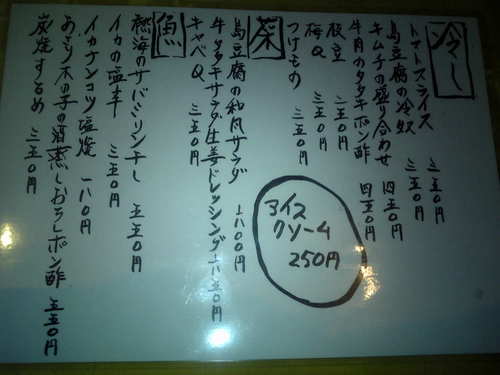 冷し
トマトスライス 三五〇円
島豆腐の冷奴 三五〇円
キムチの盛り合わせ 四五〇円
牛肉のタタキポン酢 四五〇円
枝豆 三五〇円
梅Q 三五〇円
つけもの 三五〇円
菜
島豆腐の和風サラダ 六〇〇円
牛タタキサラダ生姜ドレッシング 六五〇円
キャベQ 三五〇円
魚
熱海のサバミリン干し 五五〇円
イカの塩辛 三五〇円
イカナンコツ塩焼 一八〇円
あさり木の子の酒蒸しおろしポン酢 五五〇円
炭焼するめ 三五〇円
アイス
クリーム
250円